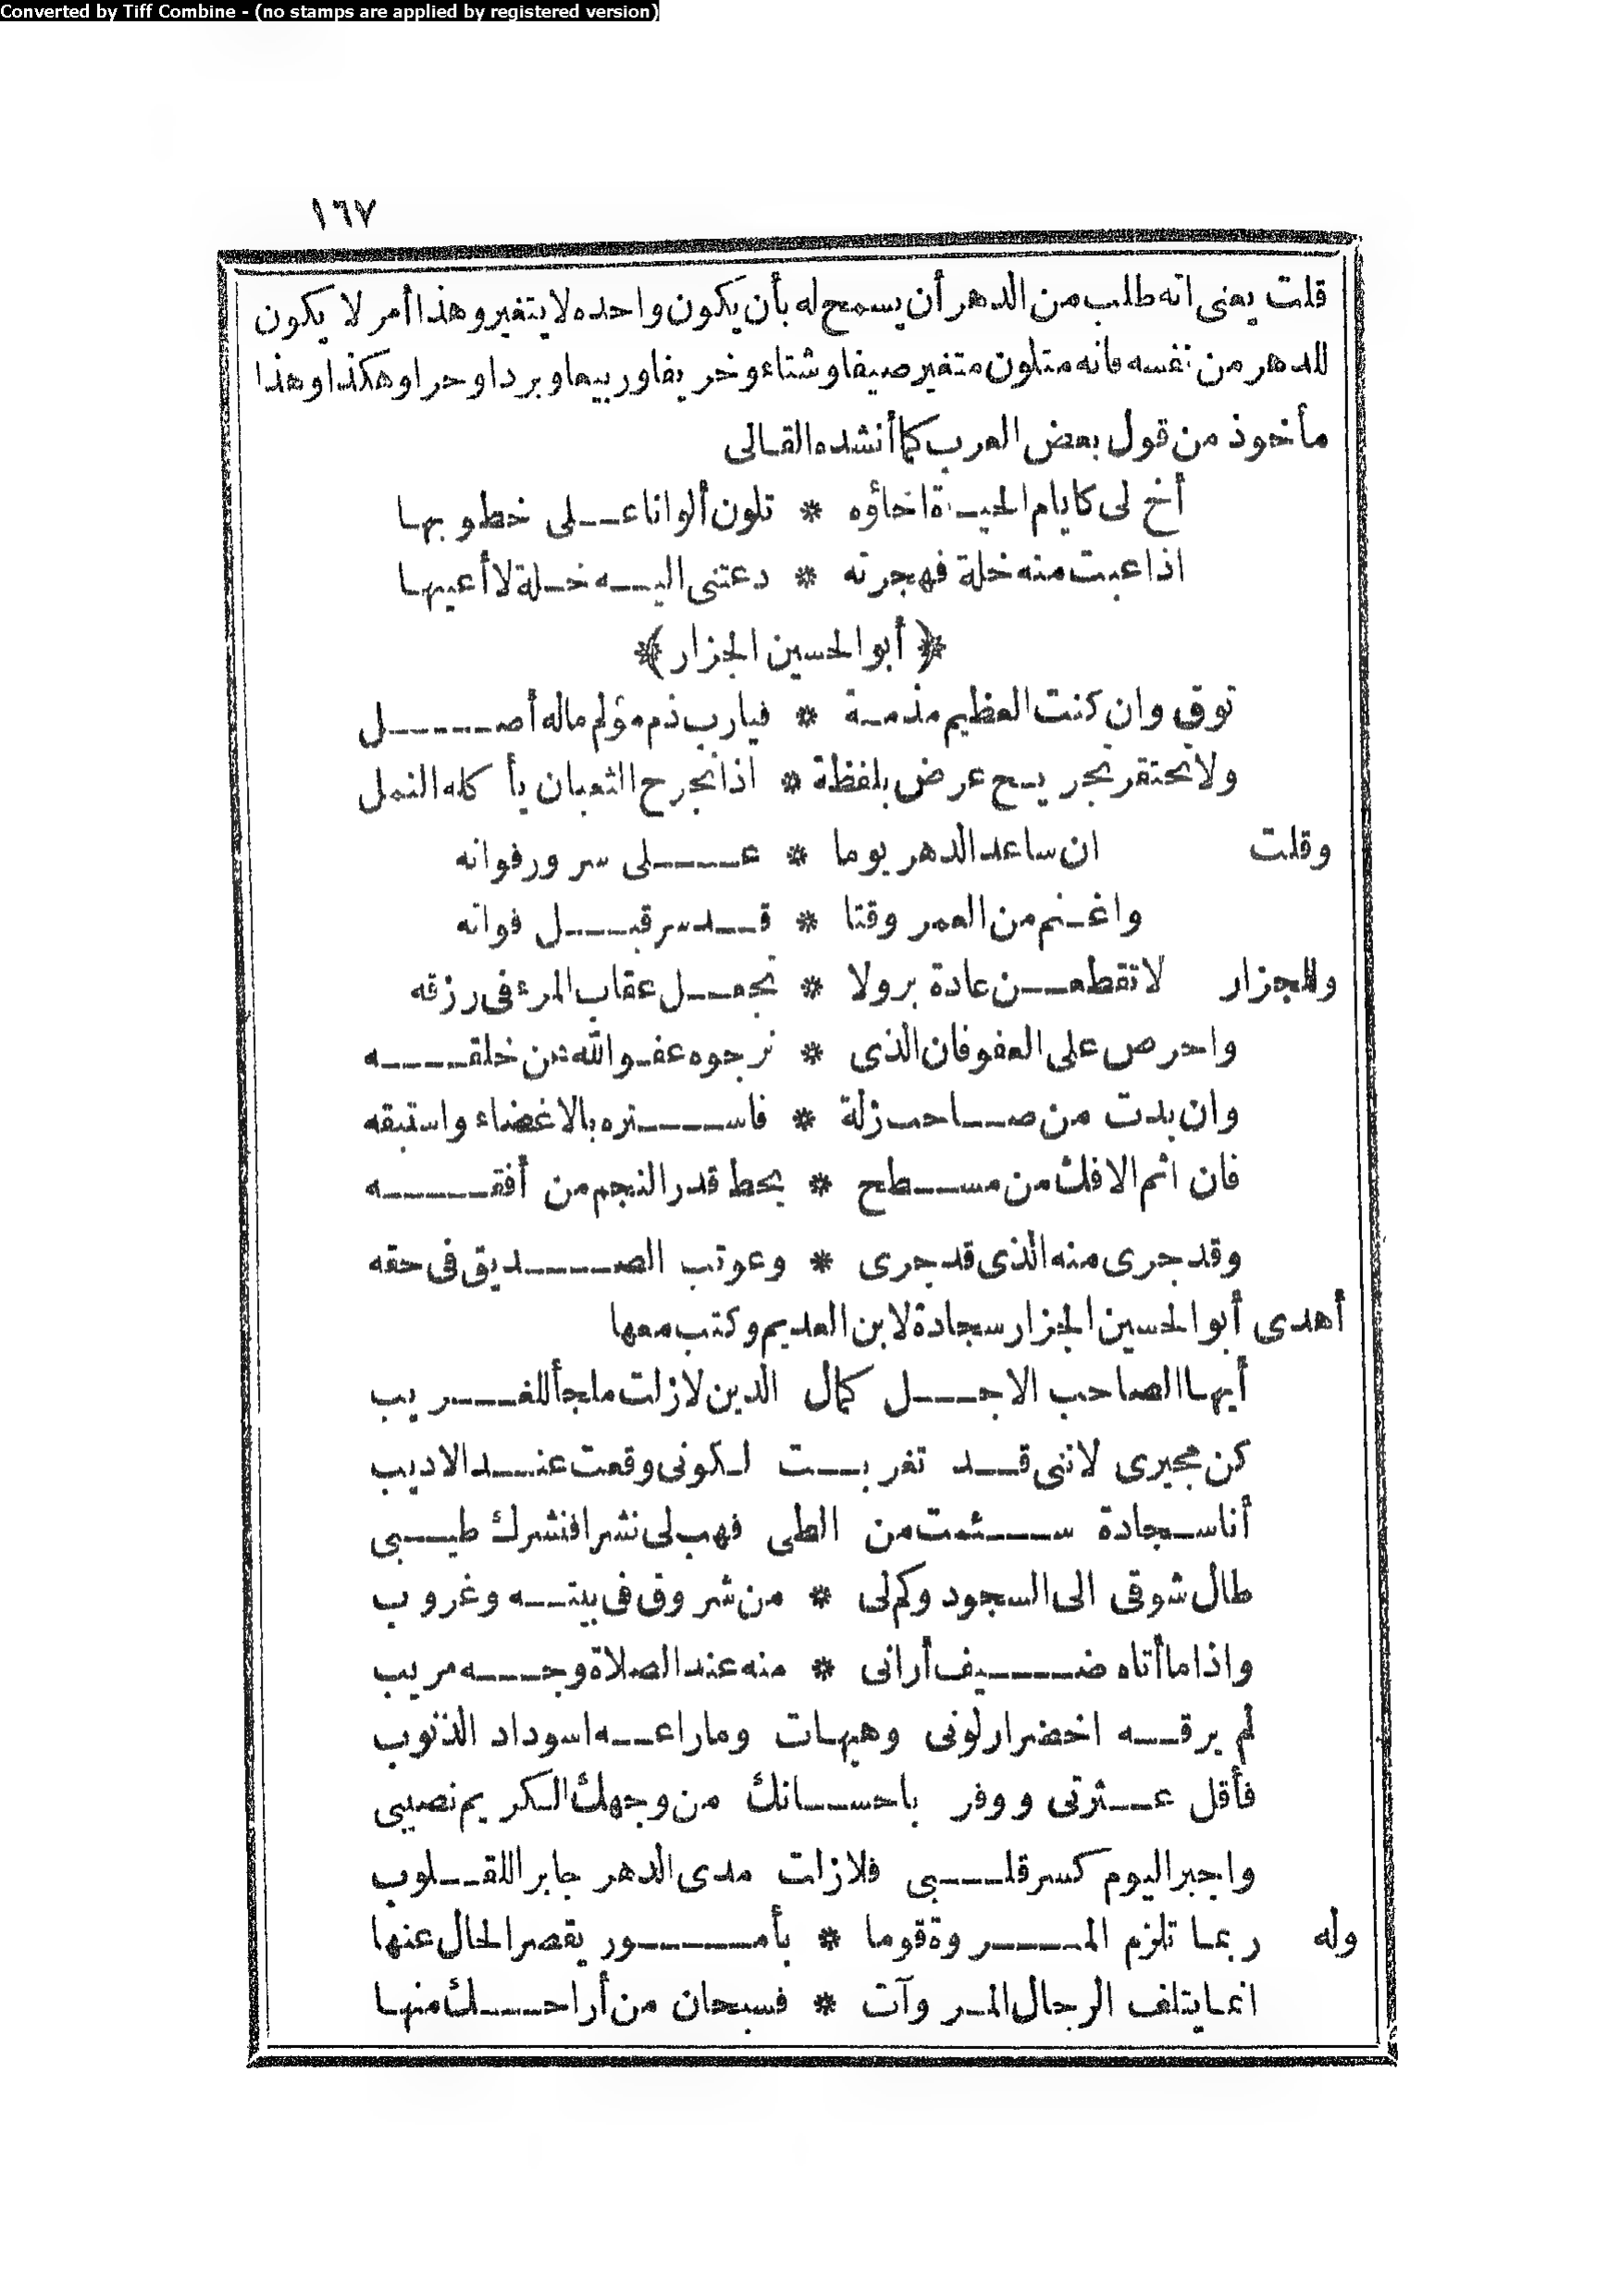 Converted by Tiff Combine - (no stamps are applied by registered version)
١٦٧
قلت يعنى انه طلب من الدهر أن يسمح له بأن يكون واحده لا يتغير وهذا أمر لا يكون
للدهر من نفسه فانه متلون متغير صيفا وشتاء وخريفا وربيعا وبردا وحرا وهكذا وهذا
مأخوذ من قول بعض العرب كما أنشده القالى
أخ لى كايام الحياة اخاؤه * تلون ألوانا على خطوبها
اذا عبت منه خلة فهجرته * دعتنى اليه خلة لا أعيبها
﴿أبو الحسين الجزار﴾
توق وان كنت العظيم مذمة * فيارب ذم مؤلم ماله أصل
ولا تحتقر تجريح عرض بلفظة * اذا تجرح الثعبان يأكله النمل
وقلت ان ساعد الدهر يوما * على سرور فوانه
واغنم من العمر وقتا * قد سر قبل فواته
وللجزار لا تقطعن عادة بر ولا * تجعل عقاب المرء فى رزقه
واحرص على العفو فان الذى * نرجوه عفو الله عن خلقه
وان بدت من صاحب زلة * فاستره بالاغضاء واستبقه
فان اثم الافك من مسطح * يحط قدر النجم من أفقه
وقد جرى منه الذى قد جرى * وعوتب الصديق فى حقه
أهدى أبو الحسين الجزار سجادة لابن العديم وكتب معها
أيها الصاحب الاجل كمال الدين لا زلت ملجأ للغريب
كن مجيرى لاننى قد تغربت لكونى وقعت عند الاديب
أنا سجادة سئمت من الطى فهب لى نشرا فنشرك طيبى
طال شوقى الى السجود وكم لى * من شروق فى بيته وغروب
واذا ما أتاه ضيف أرانى * منه عند الصلاة وجه مريب
لم يرقه اخضرار لونى وهيهات وما راعه اسوداد الذنوب
فأقل عثرتى ووفر باحسانك من وجهك الكريم نصيبى
واجبر اليوم كسر قلبى فلا زلت مدى الدهر جابرا للقلوب
وله ربما تلزم المروة قوما * بأمور يقصر الحال عنها
انما يتلف الرجال المروآت * فسبحان من أراحك منها